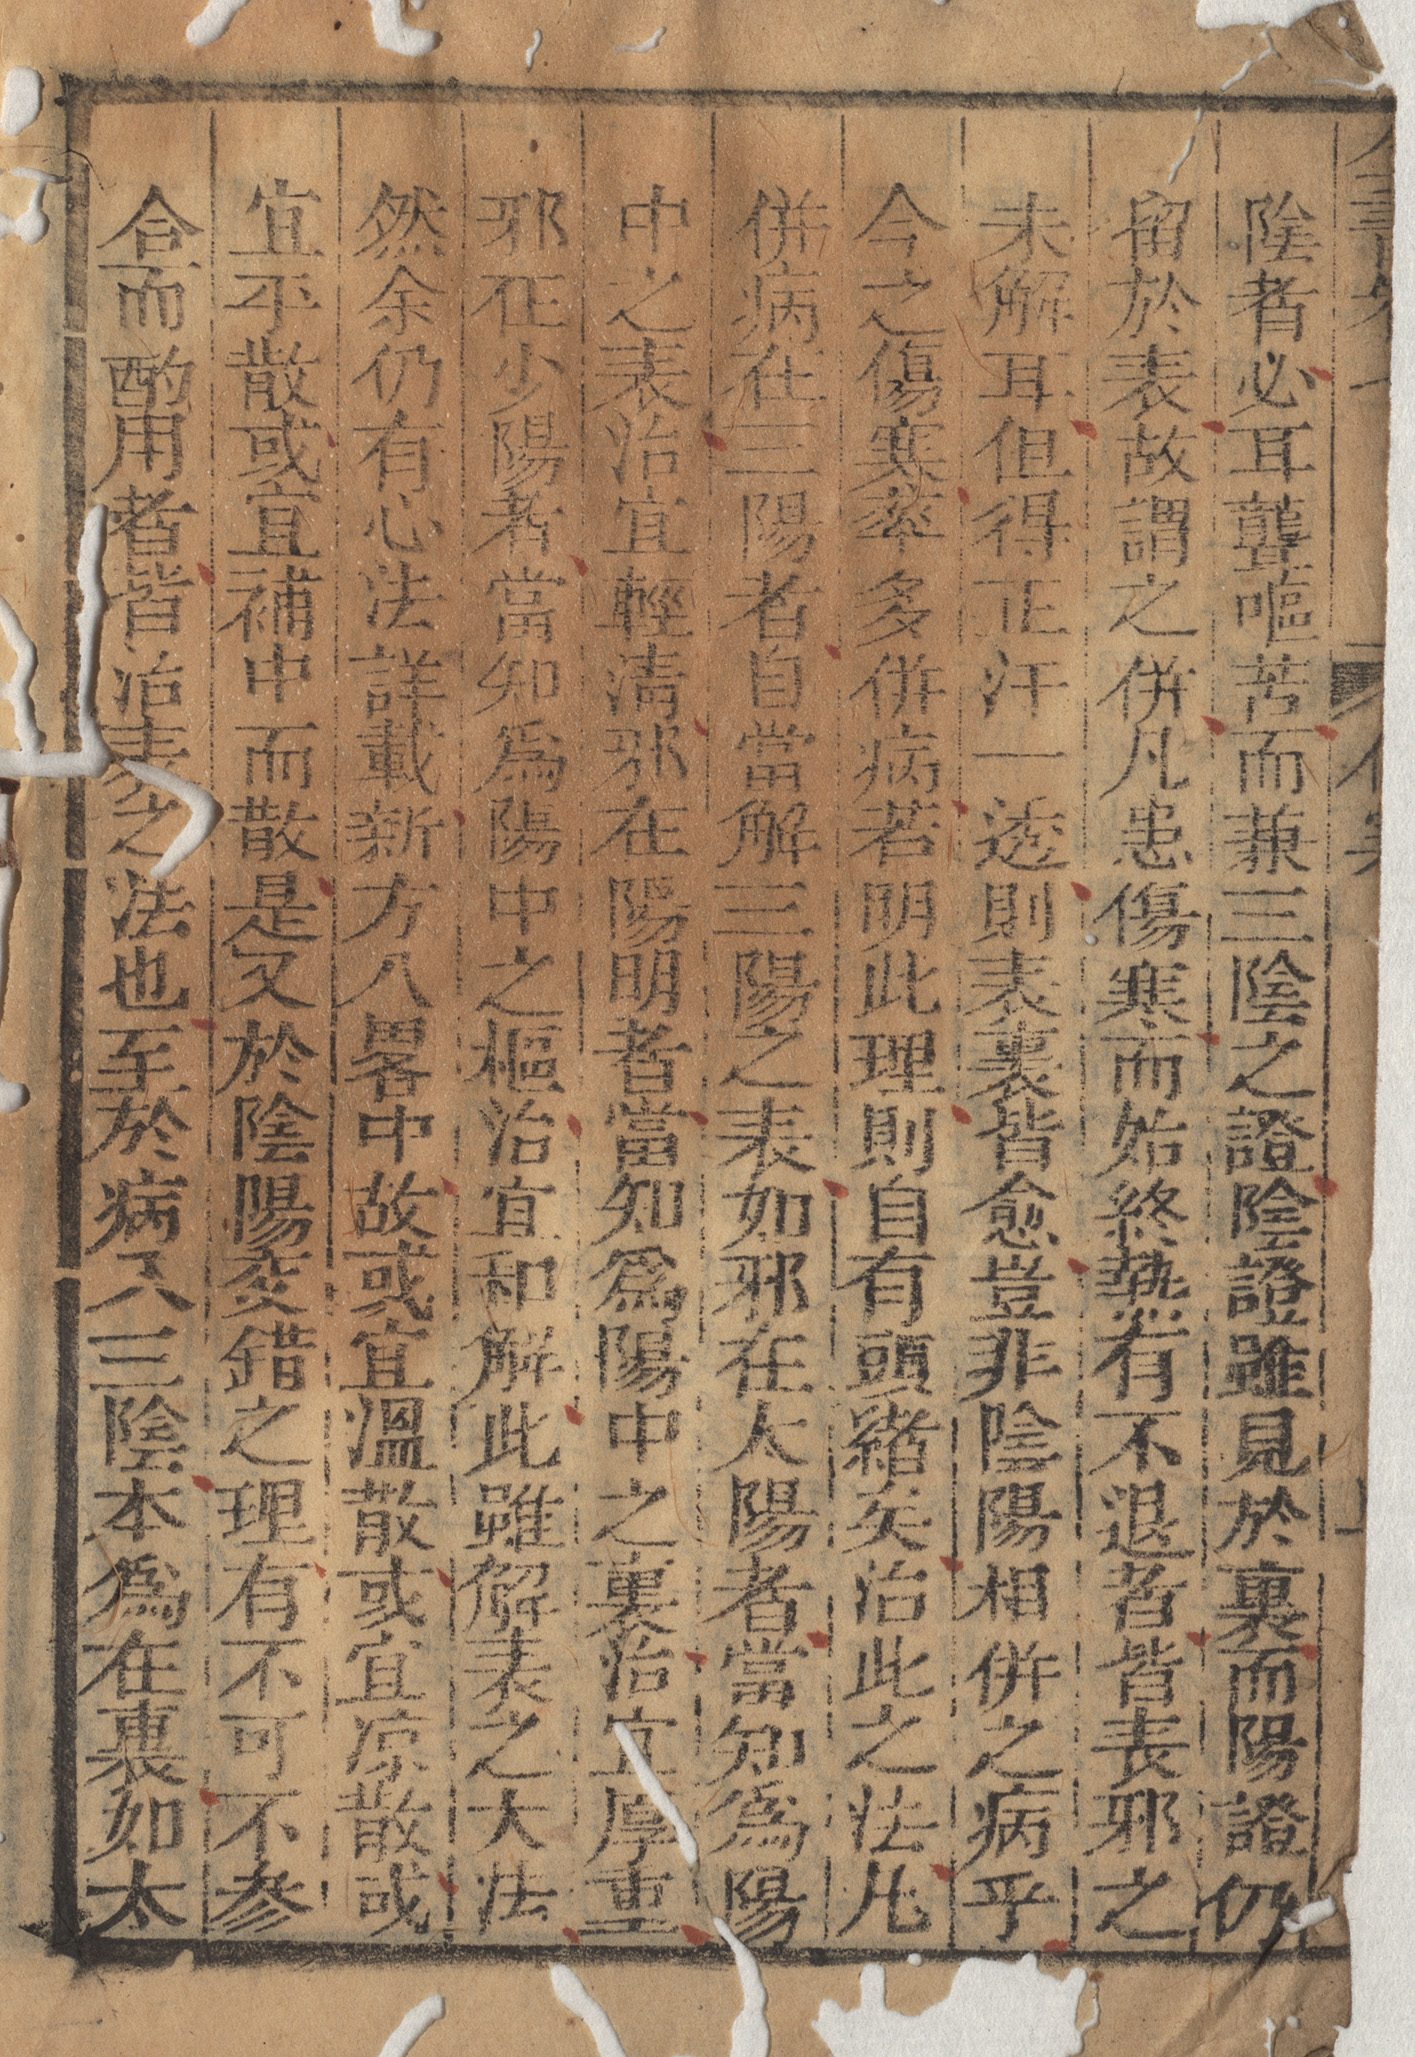 陰者必耳聾嘔苦而兼三陰之證陰證雖見於裏而陽證仍
留於表故謂之併凡患傷寒而始終𤍠有不退者皆表邪之
未解耳但得正汗一透則表裏皆愈豈非陰陽相併之病乎
今之傷寒率多併病若明此理則自有頭緒矣治此之法凡
併病在三陽者自當解三陽之表如邪在太陽者當知為陽
中之表治宜輕清邪在陽明者當知為陽中之裏治宜厚重
邪在少陽者當知為陽中之樞治宜和解此雖解表之大法
然余仍有心法詳載新方八畧中故或宜溫散或宜凉散或
宜平散或宜補中而散是又於陰陽交錯之理有不可不參
合而酌用者皆治表之法也至於病入三陰本為在裏如太